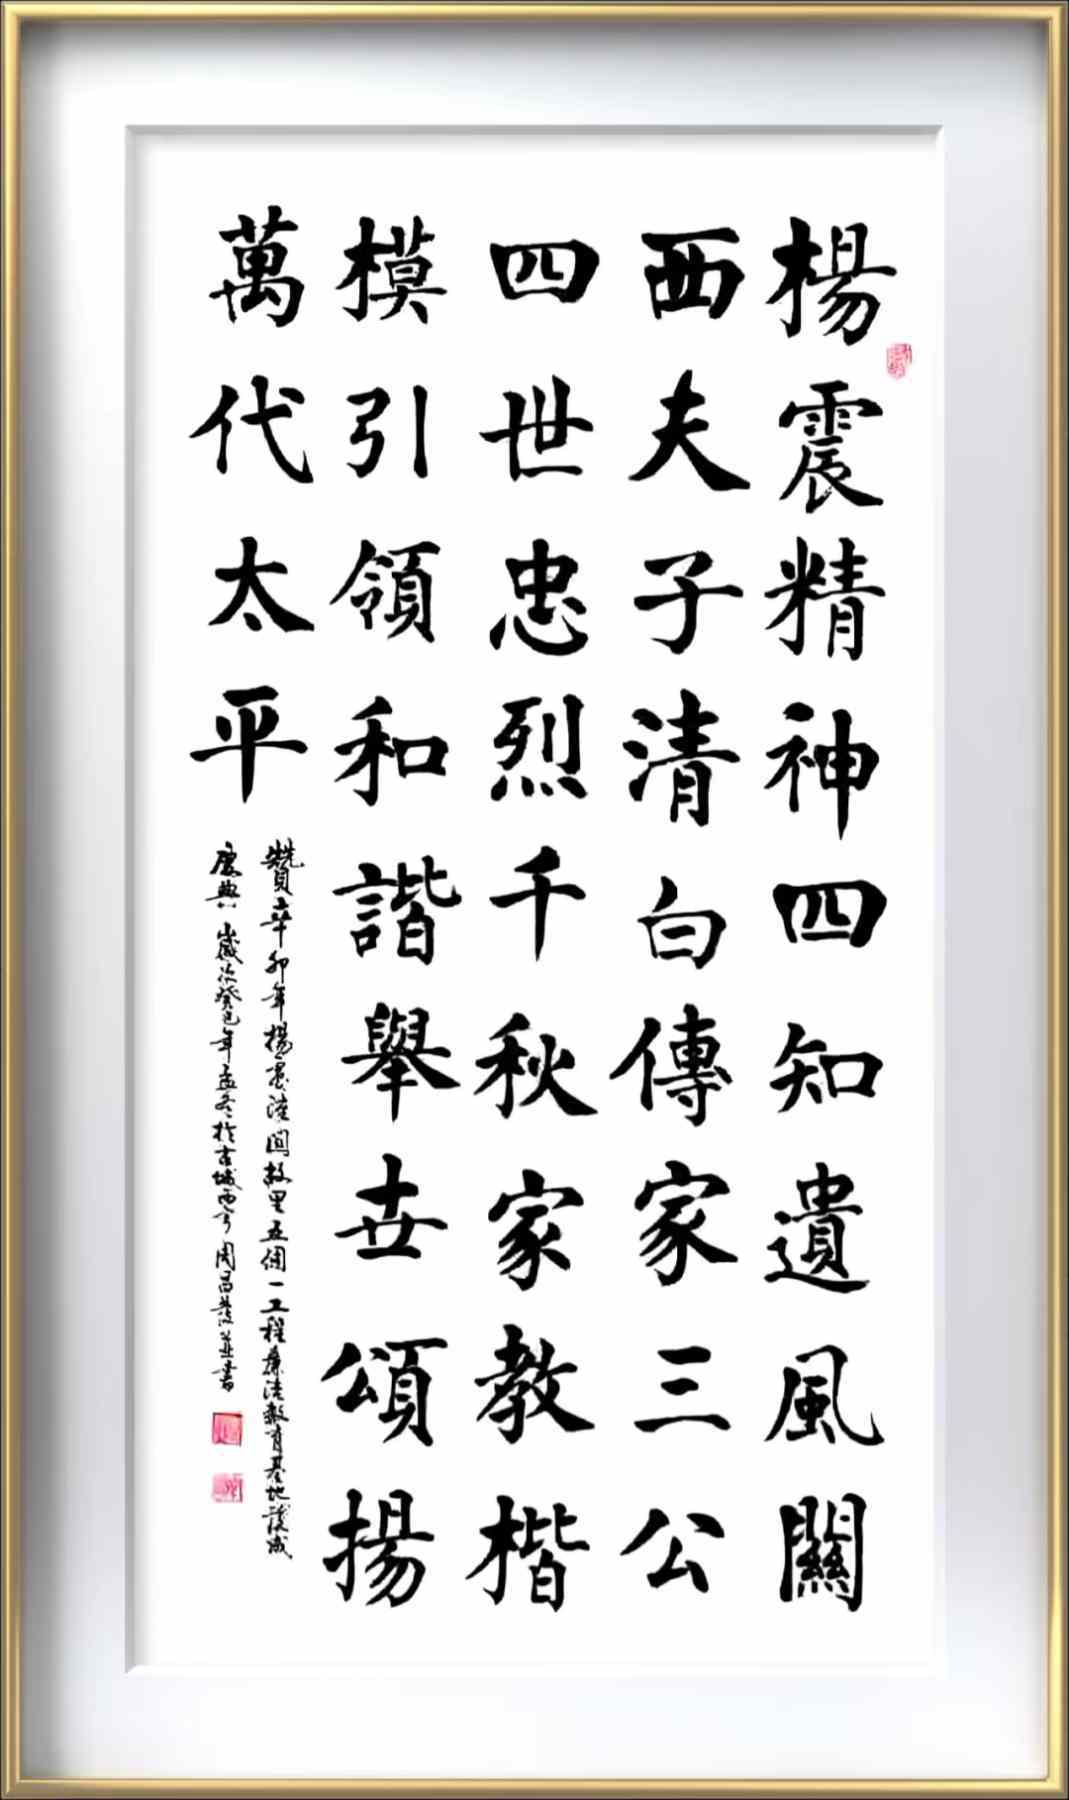 楊震精神四知遺風關
西夫子清白傳家三公
四世忠烈千秋家教楷
模引領和諧舉世頌揚
萬代太平
贊辛卯年楊震潼關故里五個一工程廉潔教育基地落成
慶典歲次癸巳年孟冬於古城西安周昌發並書